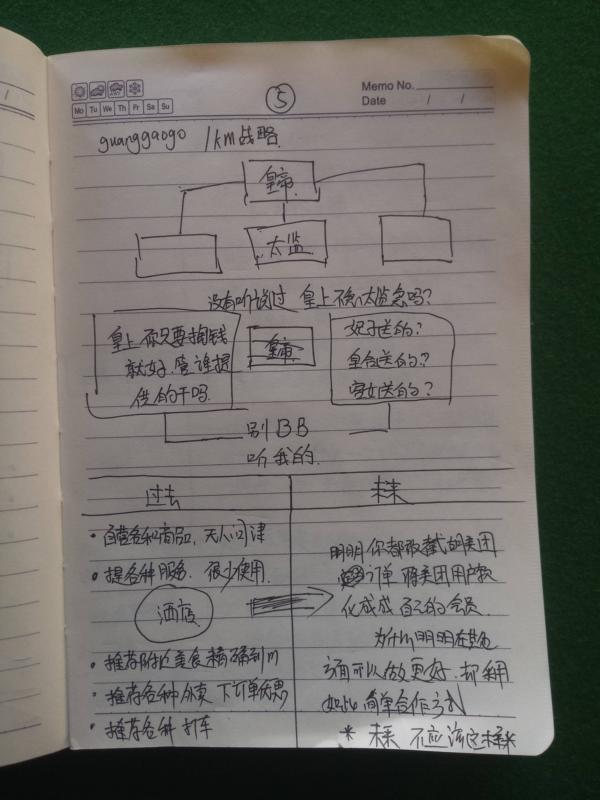 5
Memo No.
Mo Tu We Th Fr Sa Su
Date / /
guanggaogo 1km战略
皇帝
太监
没有听说过 皇上不急太监急吗?
皇上你只要掏钱
就好.管谁提
供的干吗.
皇帝
妃子送的?
皇后送的?
宫女送的?
别BB
听我的.
过去
未来
·自营各种商品, 无人问津
·提各种服务. 很少使用.
酒店
·推荐附近美食精确到m
·推荐各种外卖 下订单优惠
·推荐各种打车
明明你都敢截胡美团
订单 将美团用户款
化成成 自己的会员.
为什么明明在其他
方面可以做更好. 却用
如此简单合作方式
* 未来 不应该这样